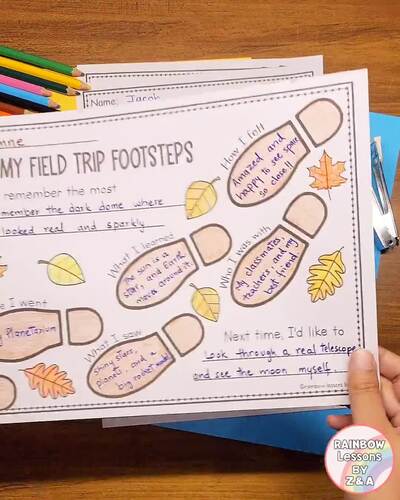 Name: Jacob
nne
MY FIELD TRIP FOOTSTEPS
remember the most
member the dark dome where
looked real and sparkly
How I felt
Amazed and
happy to see space
so close!!
What I learned
The sun is a
star, and Earth
moves around it.
Who I was with
My classmates,
teachers, and my
best friend.
e I went
Planetarium
What I saw
shiny stars,
planets, and a
big rocket model
Next time, I'd like to
Look through a real telescope
and see the moon myself.
RAINBOW
Lessons
BY
Z & A